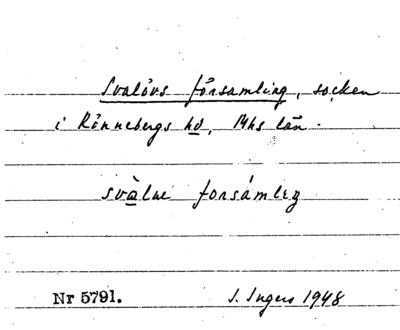 Svalövs församling, socken
i Rönnebergs hd, Mhs län.
svàlue forsámlıŋ
Nr 5791.
I. Ingers 1948